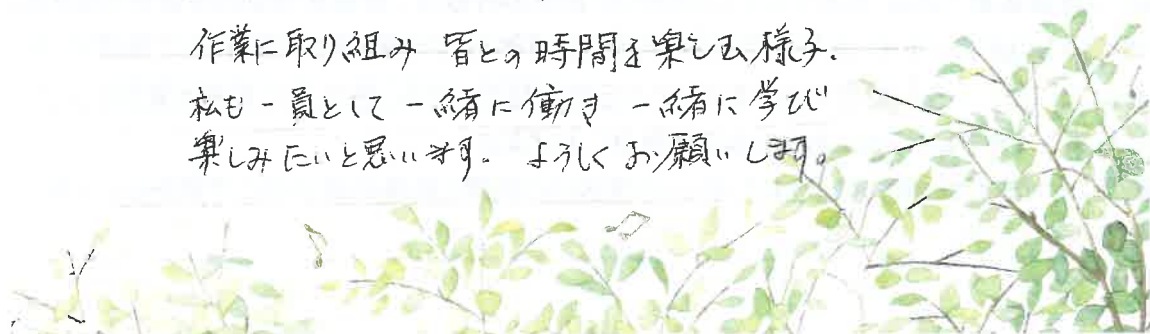 作業に取り組み 皆との時間を楽しむ様子.
私も一員として一緒に働き 一緒に学び
楽しみたいと思います. よろしくお願いします。